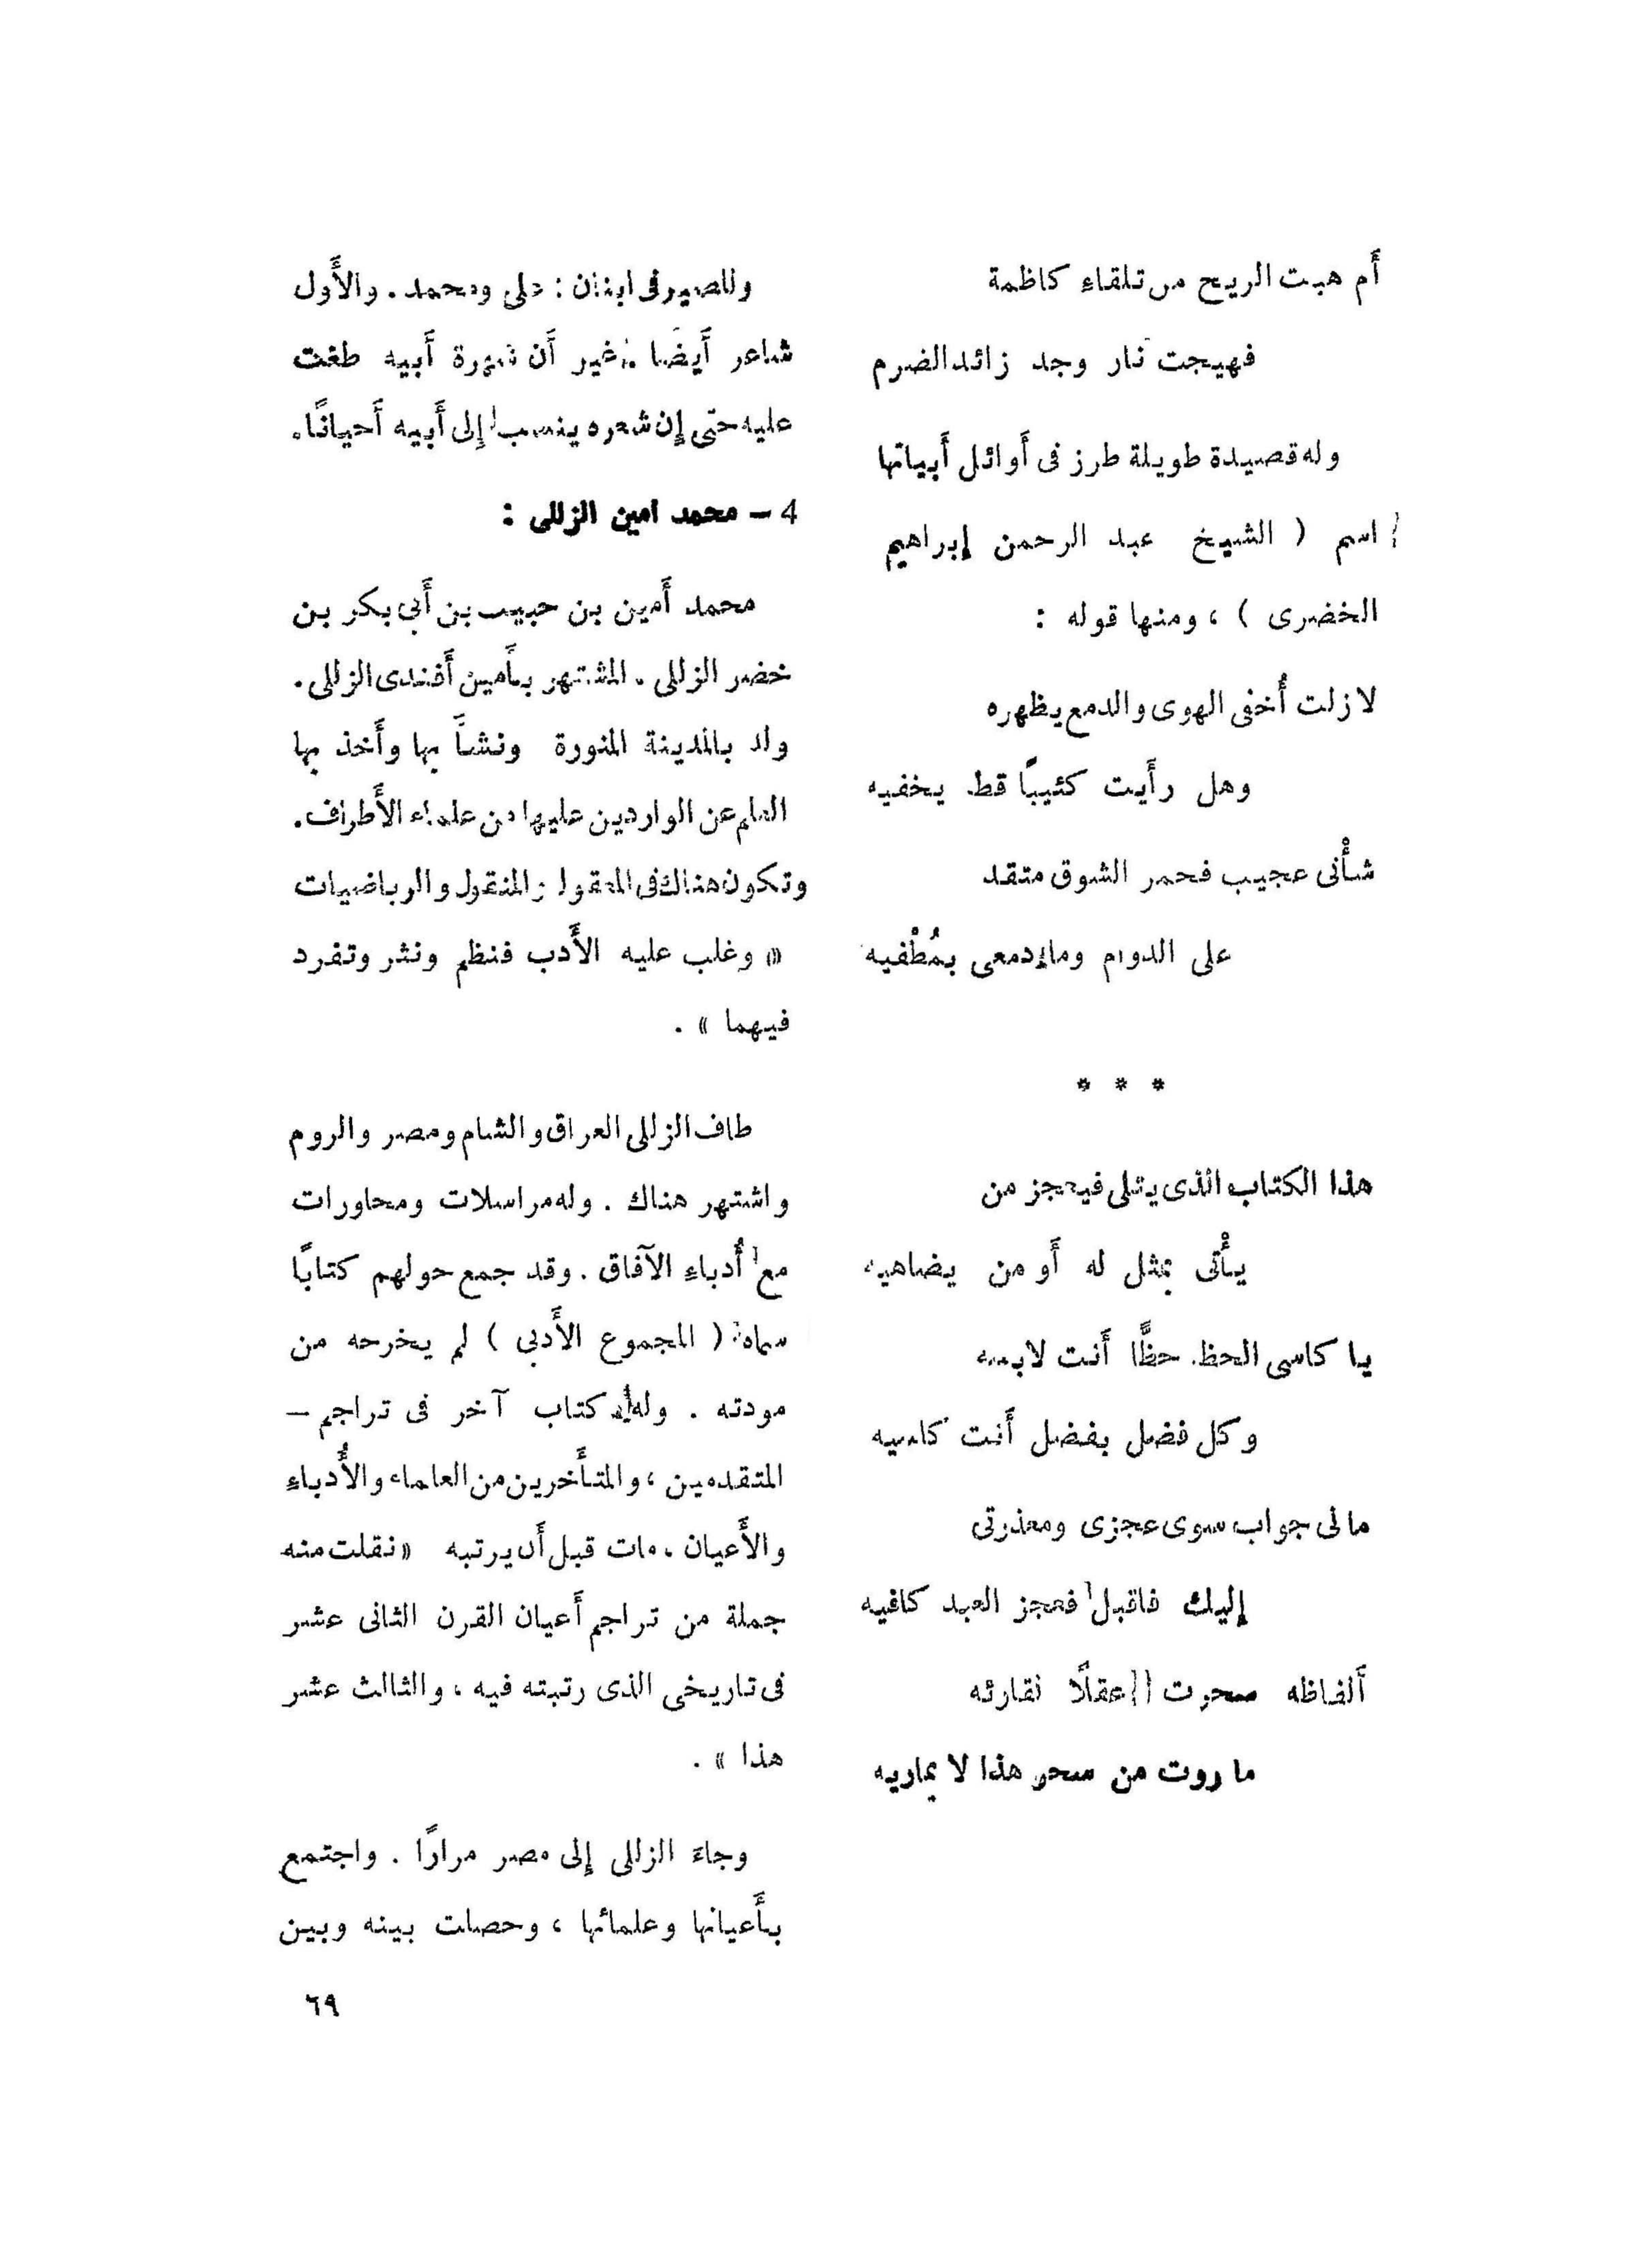 أَم هبت الريح من تلقاء كاظمة
فهيجت نار وجد زائد الضرم
وله قصيدة طويلة طرز فى أَوائل أَبياتها
اسم ( الشيخ عبد الرحمن إبراهيم
الخضرى ) ، ومنها قوله :
لا زلت أُخفى الهوى والدمع يظهره
وهل رأَيت كئيبًا قط يخفيه
شأْنى عجيب فحمر الشوق متقد
على الدوام وما دمعى بمُطْفيه
* * *
هذا الكتاب الذى يتلى فيعجز من
يأْتى بمثل له أَو من يضاهيه
يا كاسى الحظ حظًّا أَنت لابسه
وكل فضل بفضل أَنت كاسيه
مالى جواب سوى عجزى ومعذرتى
إليك فاقبل فعجز العبد كافيه
أَلفاظه سحرت عقلًا لقارئه
ما روت من سحر هذا لا يماريه
وللصيرفى ابنان : على ومحمد . والأَول
شاعر أَيضًا غير أَن شهرة أَبيه طغت
عليه حتى إن شعره ينسب إلى أَبيه أَحيانًا .
4 – محمد امين الزللى :
محمد أَمين بن حبيب بن أَبى بكر بن
خضر الزللى . المشتهر بأَمين أَفندى الزللى .
ولد بالمدينة المنورة ونشأَ بها وأَخذ بها
العلم عن الواردين عليها من علماء الأَطراف .
وتكون هناك فى المعقول والمنقول والرياضيات
« وغلب عليه الأَدب فنظم ونثر وتفرد
فيهما » .
طاف الزللى العراق والشام ومصر والروم
واشتهر هناك . وله مراسلات ومحاورات
مع أُدباء الآفاق . وقد جمع حولهم كتابًا
سماه ( المجموع الأَدبى ) لم يخرجه من
مودته . وله كتاب آخر فى تراجم –
المتقدمين ، والمتأَخرين من العلماء والأُدباء
والأَعيان . مات قبل أَن يرتبه « نقلت منه
جملة من تراجم أَعيان القرن الثانى عشر
فى تاريخى الذى رتبته فيه ، والثالث عشر
هذا » .
وجاءَ الزللى إلى مصر مرارًا . واجتمع
بأَعيانها وعلمائها ، وحصلت بينه وبين
٦٩